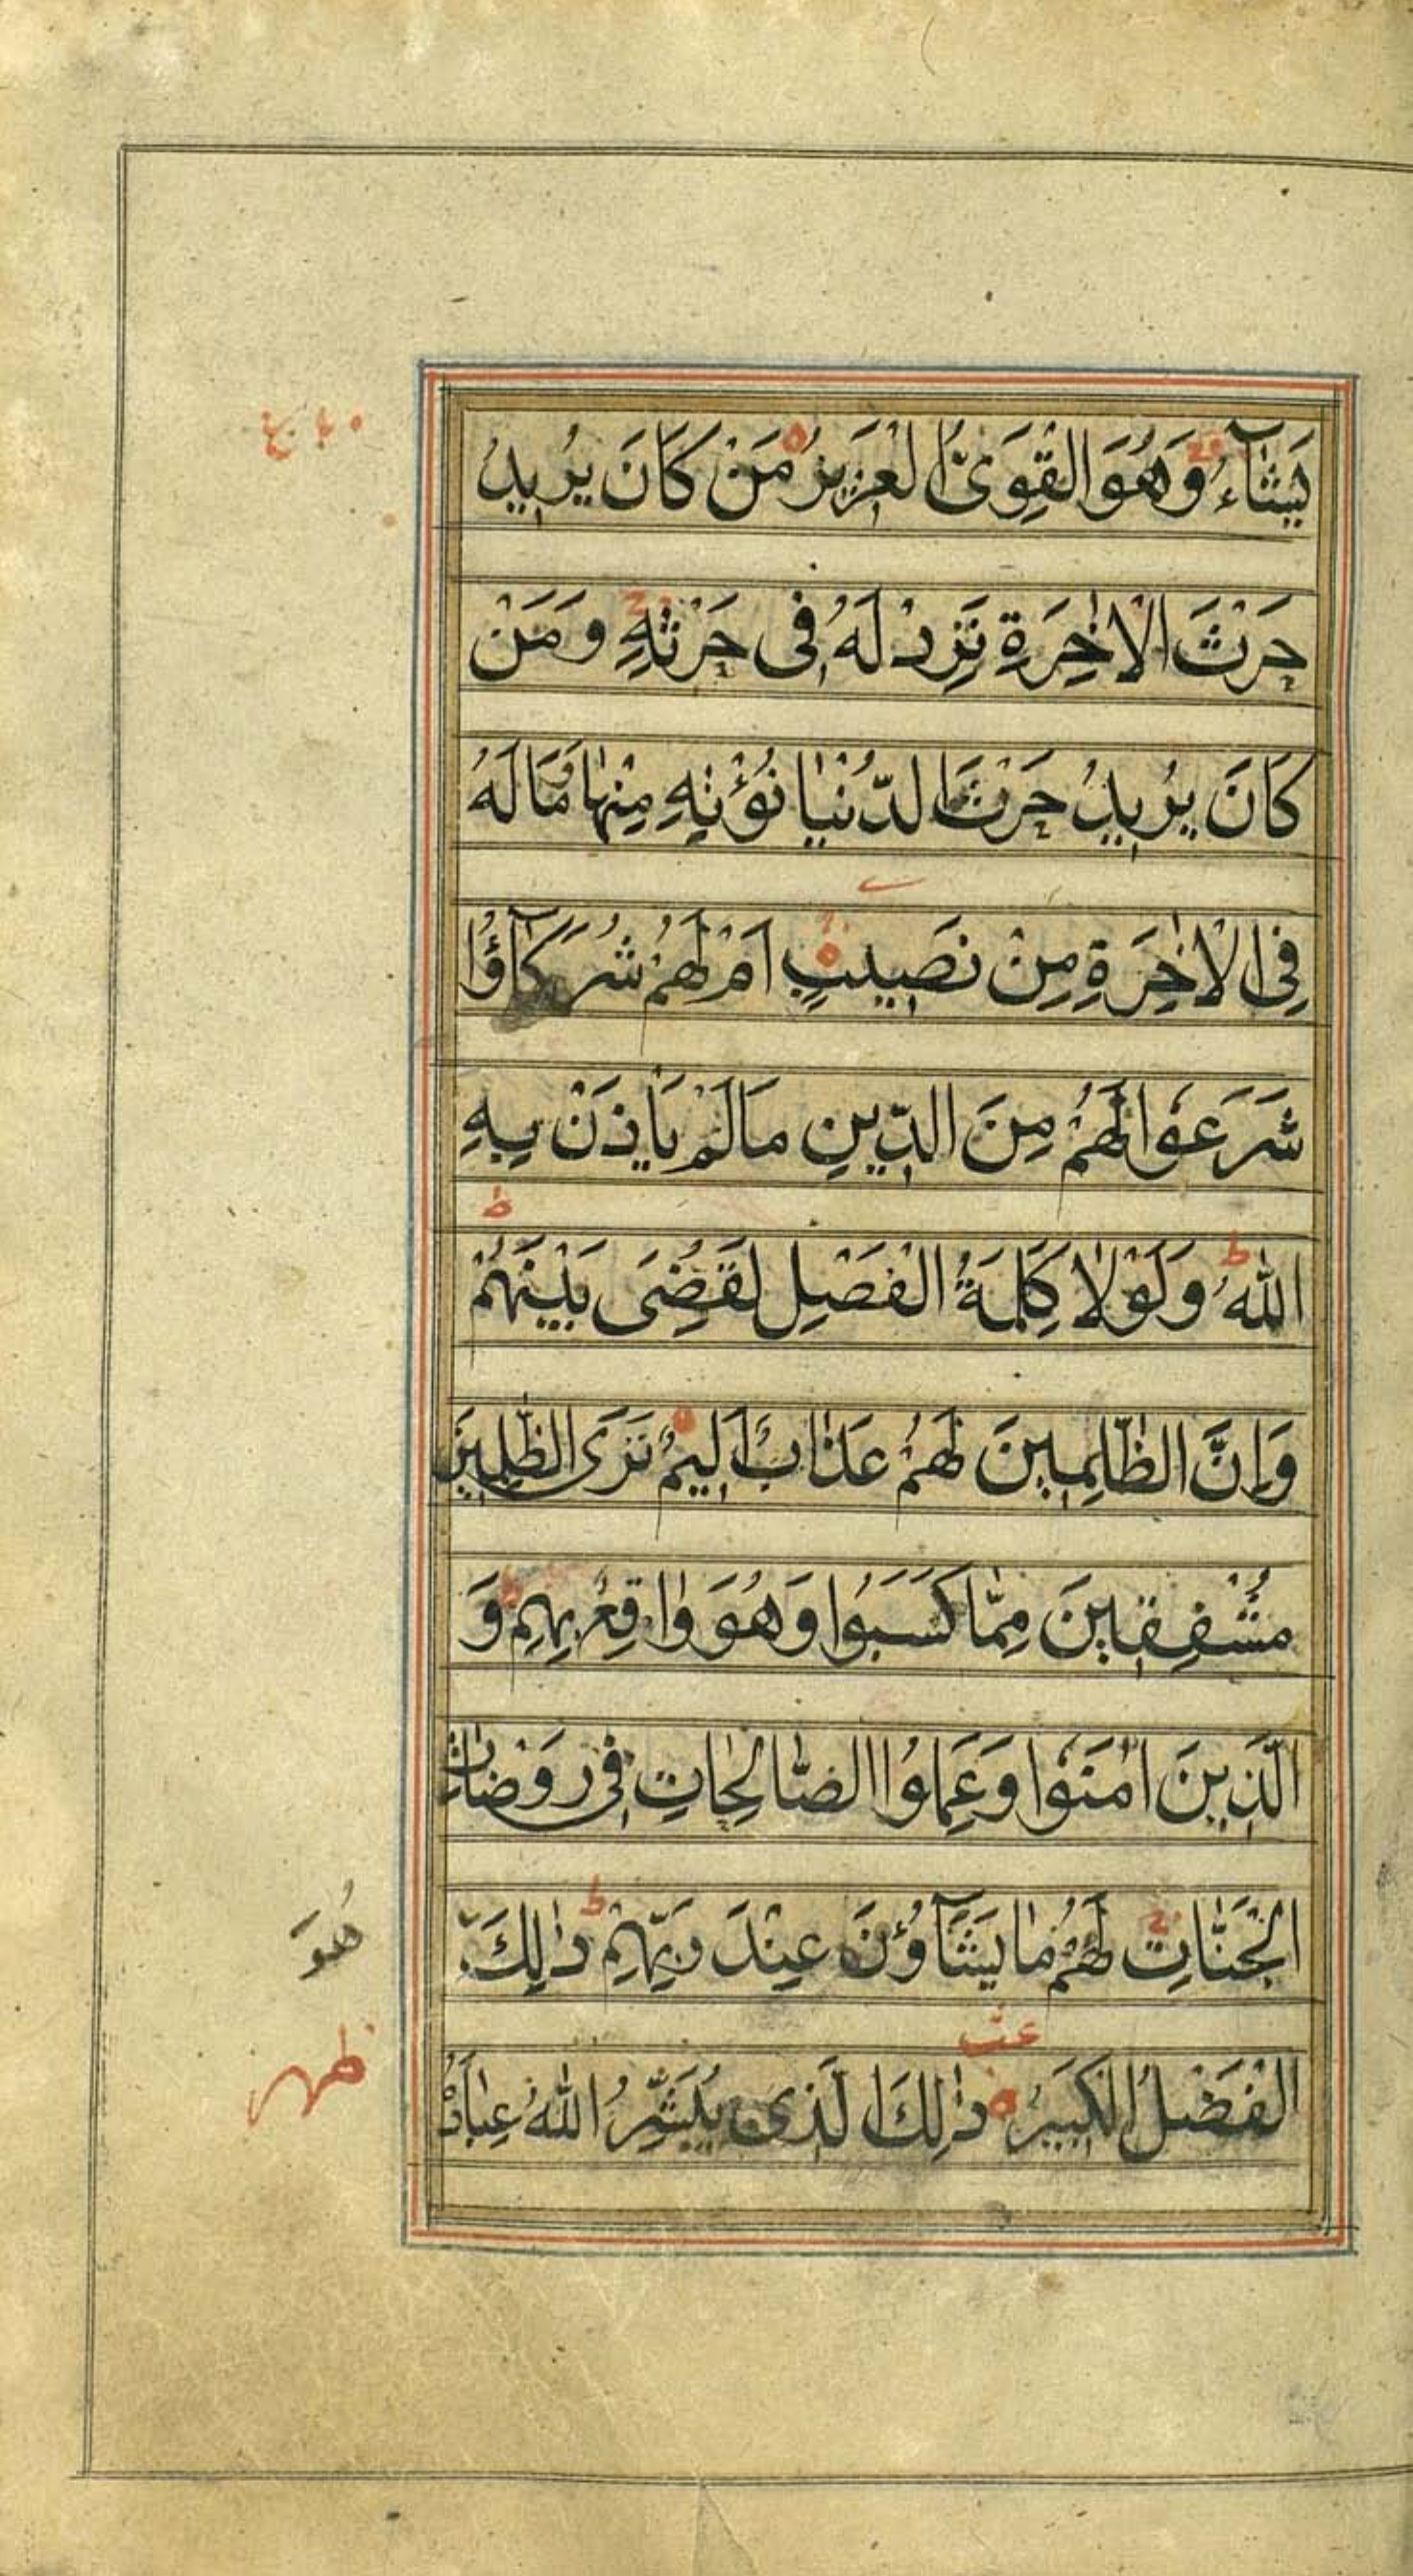 يَشَآءُ وَهُوَ الْقَوِىُّ الْعَزِيزُ مَنْ كَانَ يُرِيدُ
حَرْثَ الْاٰخِرَةِ نَزِدْ لَهُ فِى حَرْثِهِ وَمَنْ
كَانَ يُرِيدُ حَرْثَ الدُّنْيٰا نُؤْتِهِ مِنْهٰا وَمٰا لَهُ
فِى الْاٰخِرَةِ مِنْ نَصِيبٍ اَمْ لَهُمْ شُرَكَآؤُا
شَرَعُوا لَهُمْ مِنَ الدِّينِ مَا لَمْ يَأْذَنْ بِهِ
اللّٰهُ وَلَوْلٰا كَلِمَةُ الْفَصْلِ لَقُضِىَ بَيْنَهُمْ
وَاِنَّ الظّٰلِمِينَ لَهُمْ عَذٰابٌ اَلِيمٌ تَرَى الظّٰلِمِينَ
مُشْفِقِينَ مِمّٰا كَسَبُوا وَهُوَ وٰاقِعٌ بِهِمْ وَ
الَّذِينَ اٰمَنُوا وَعَمِلُوا الصّٰالِحٰاتِ فِى رَوْضٰاتِ
الْجَنّٰاتِ لَهُمْ مٰا يَشَآؤُنَ عِنْدَ رَبِّهِمْ ذٰلِكَ
هُوَ
الْفَضْلُ الْكَبِيرُ ذٰلِكَ الَّذِى يُبَشِّرُ اللّٰهُ عِبٰادَهُ